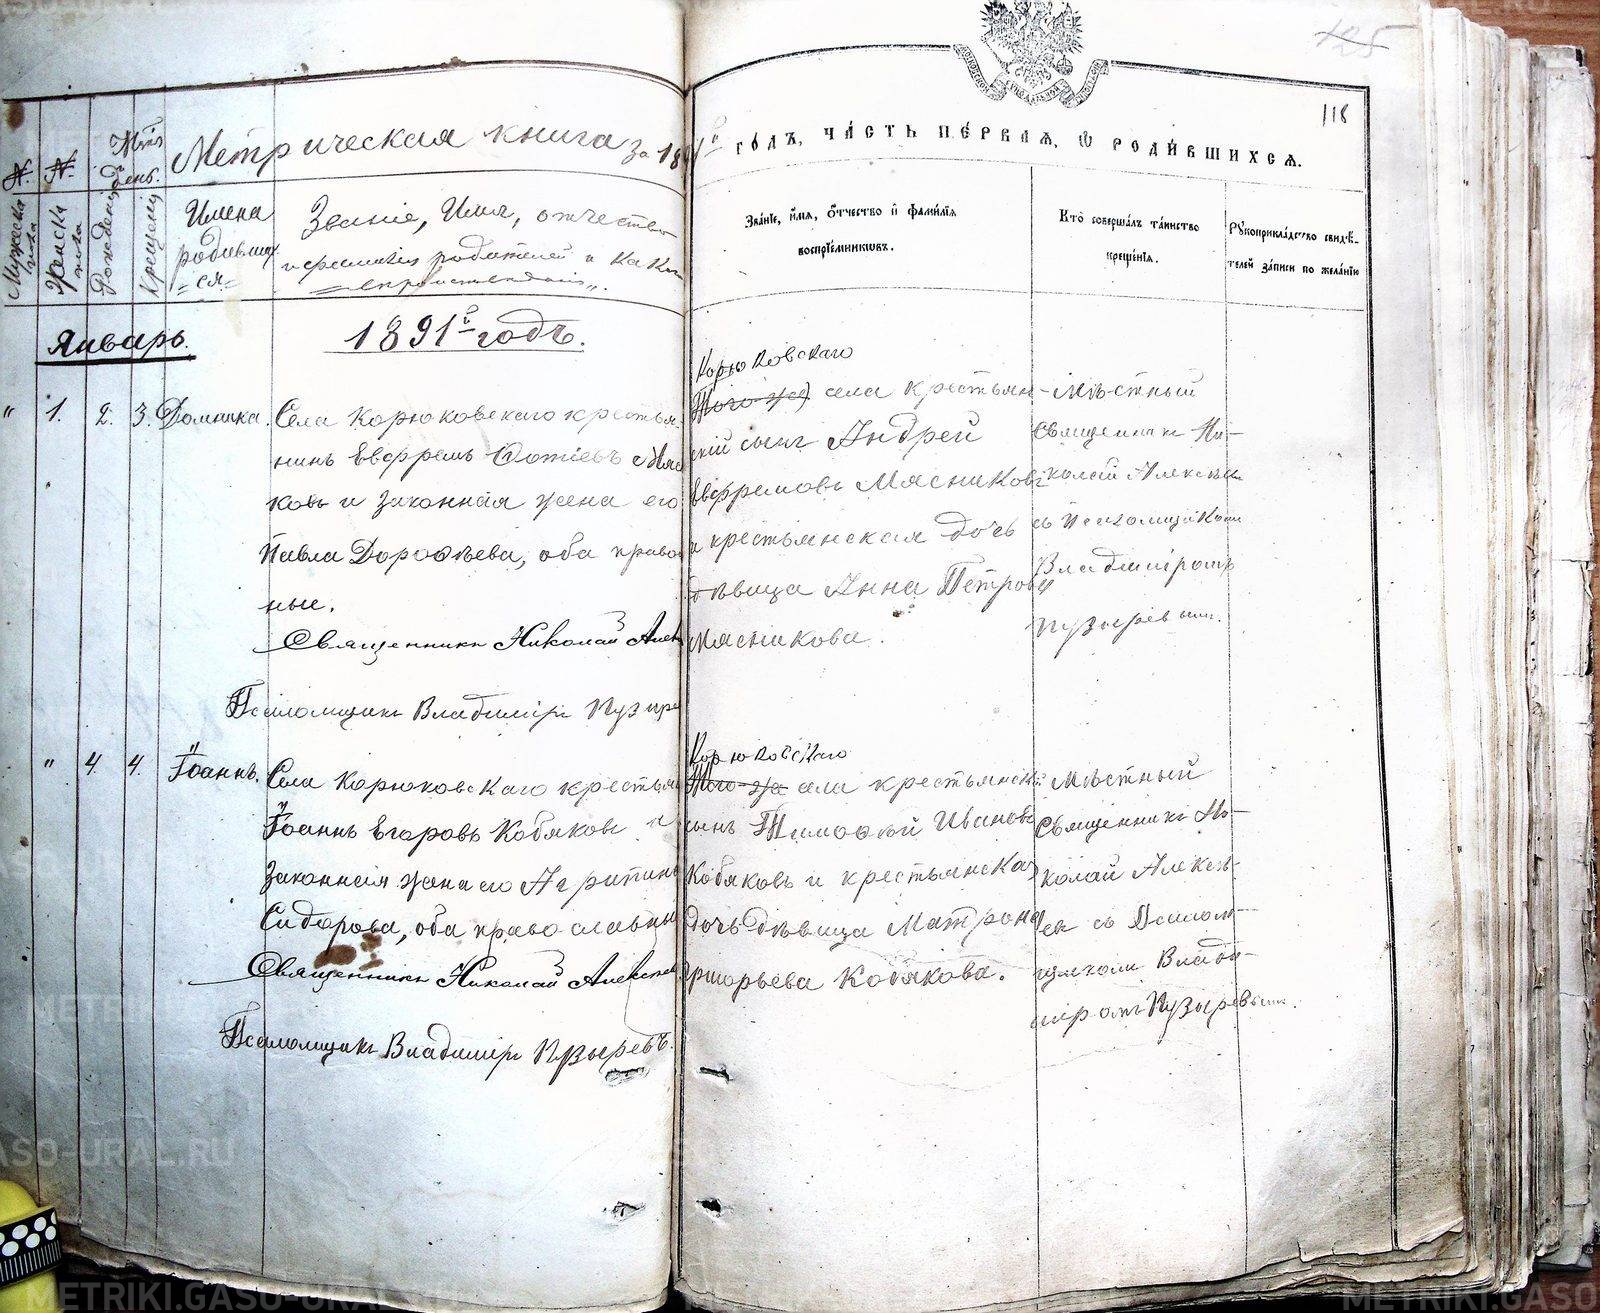 125
118
Метрическая книга за 189
1й годъ, часть первая, ѡ родившихся.
№. №. Мѣсяцъ и день.
Мужеска пола Женска пола Рожденія Крещенія
Имена
родивших
=ся=
Званіе, Имя, отчество
и фамилія родителей и какого
вѣроисповѣданія".
Званіе, имя, отчество и фамилія
воспріемниковъ.
Кто совершалъ таинство
крещенія.
Рукоприкладство свидѣ-
телей записи по желанію
Январь.
1891й годъ.
" 1. 2. 3. Домника.
Села Корюковскаго крестья-
нинъ Евфремъ Фотіевъ Мяс
ковъ и законная жена его
Павла Дороѳѣева, оба право
ные.
Священникъ Николай Алек
Псаломщикъ Владиміръ Пузыре
Корюковскаго
Того-же села крестьян-
скій сынъ Андрей
Евфремовъ Мясниковъ
и крестьянская дочь
дѣвица Анна Петрова
Мясникова.
Мѣстный
Священникъ Ни-
колай Алексѣевъ
съ Псаломщикомъ
Владиміромъ
Пузыревымъ.
" 4. 4. Іоаннъ.
Села Корюковскаго крестьян
Іоаннъ Егоровъ Кобяковъ и
законная жена его Агрипина
Сидорова, оба православны
Священникъ Николай Алексѣ
Псаломщикъ Владиміръ Пузыревъ.
Корюковскаго
Того-же села крестьянскі
сынъ Тимоѳей Ивановъ
Кобяковъ и крестьянская
дочь дѣвица Матрона
Григорьева Кобякова.
Мѣстный
Священникъ Ни-
колай Алексѣ-
евъ съ Псалом-
щикомъ Влади-
міромъ Пузыревымъ.
METRIKI.GASO-URAL.RU